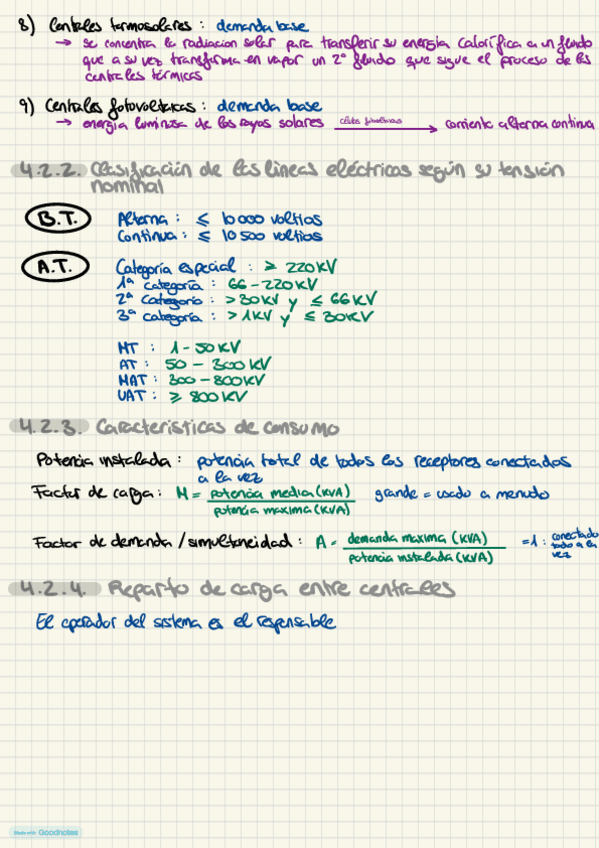 8) Centrales termosolares : demanda base
→ se concentra la radiacion solar para transferir su energía calorífica a un fluido
que a su vez transforma en vapor un 2º fluido que sigue el proceso de las
centrales térmicas
9) Centrales fotovoltaicas : demanda base
→ energia luminosa de los rayos solares células fotovoltaicas → corriente alterna continua
4.2.2. Clasificación de las líneas eléctricas según su tensión
nominal
B.T. Alterna : ≤ 10000 voltios
Continua : ≤ 10500 voltios
A.T. Categoría especial : ≥ 220 KV
1ª categoría : 66 - 220 KV
2ª categoria : > 30 KV y ≤ 66 KV
3ª categoria : > 1 KV y ≤ 30 KV
MT : 1 - 50 KV
AT : 50 - 300 KV
MAT : 300 - 800 KV
UAT : ≥ 800 KV
4.2.3. Caracteristicas de consumo
Potencia instalada : potencia total de todos los receptores conectados
a la vez
Factor de carga : M = potencia media (KVA) / potencia maxima (KVA) grande = usado a menudo
Factor de demanda / simultaneidad : A = demanda maxima (KVA) / potencia instalada (KVA) = 1 : conectado todo a la vez
4.2.4. Reparto de carga entre centrales
El operador del sistema es el responsable
Made with Goodnotes